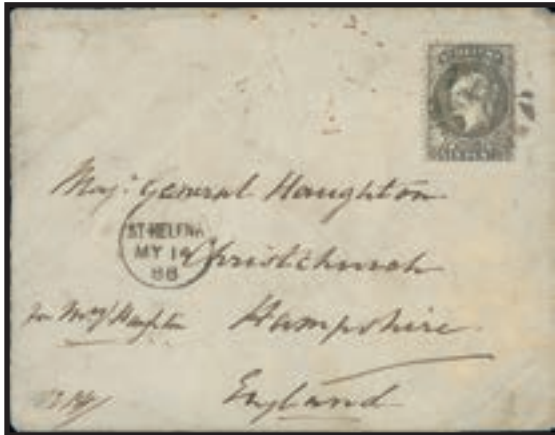 Maj: General Haughton
ST·HELENA
MY 19
88
Christchurch
Hampshire
England